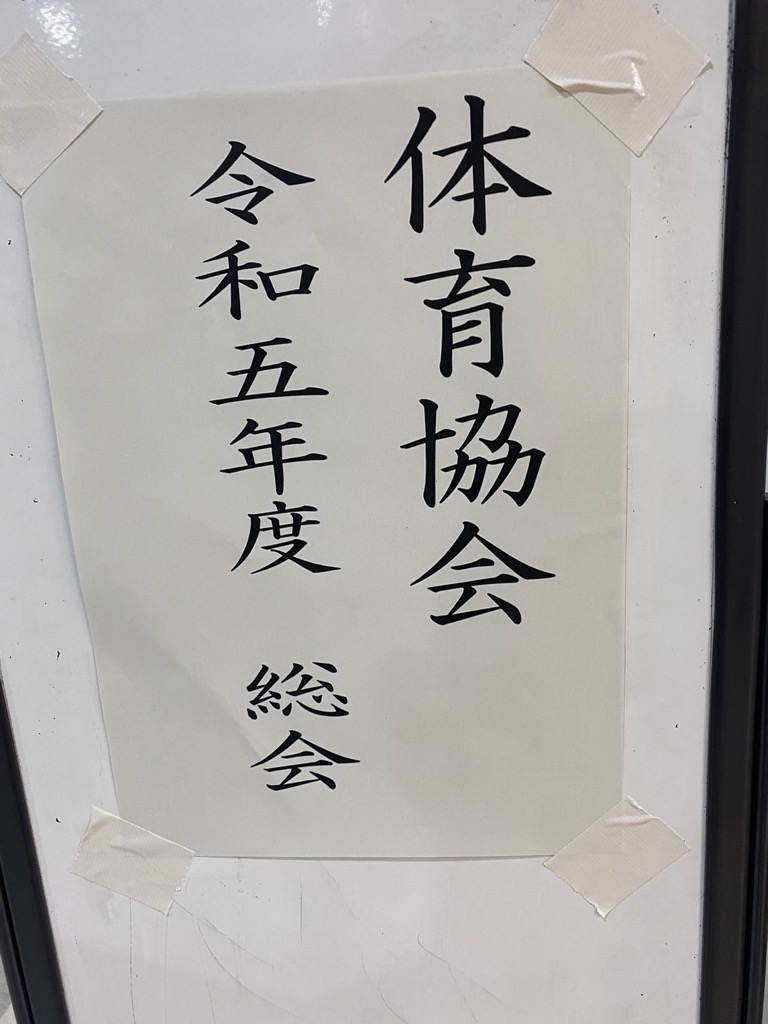 体育協会
令和五年度 総会